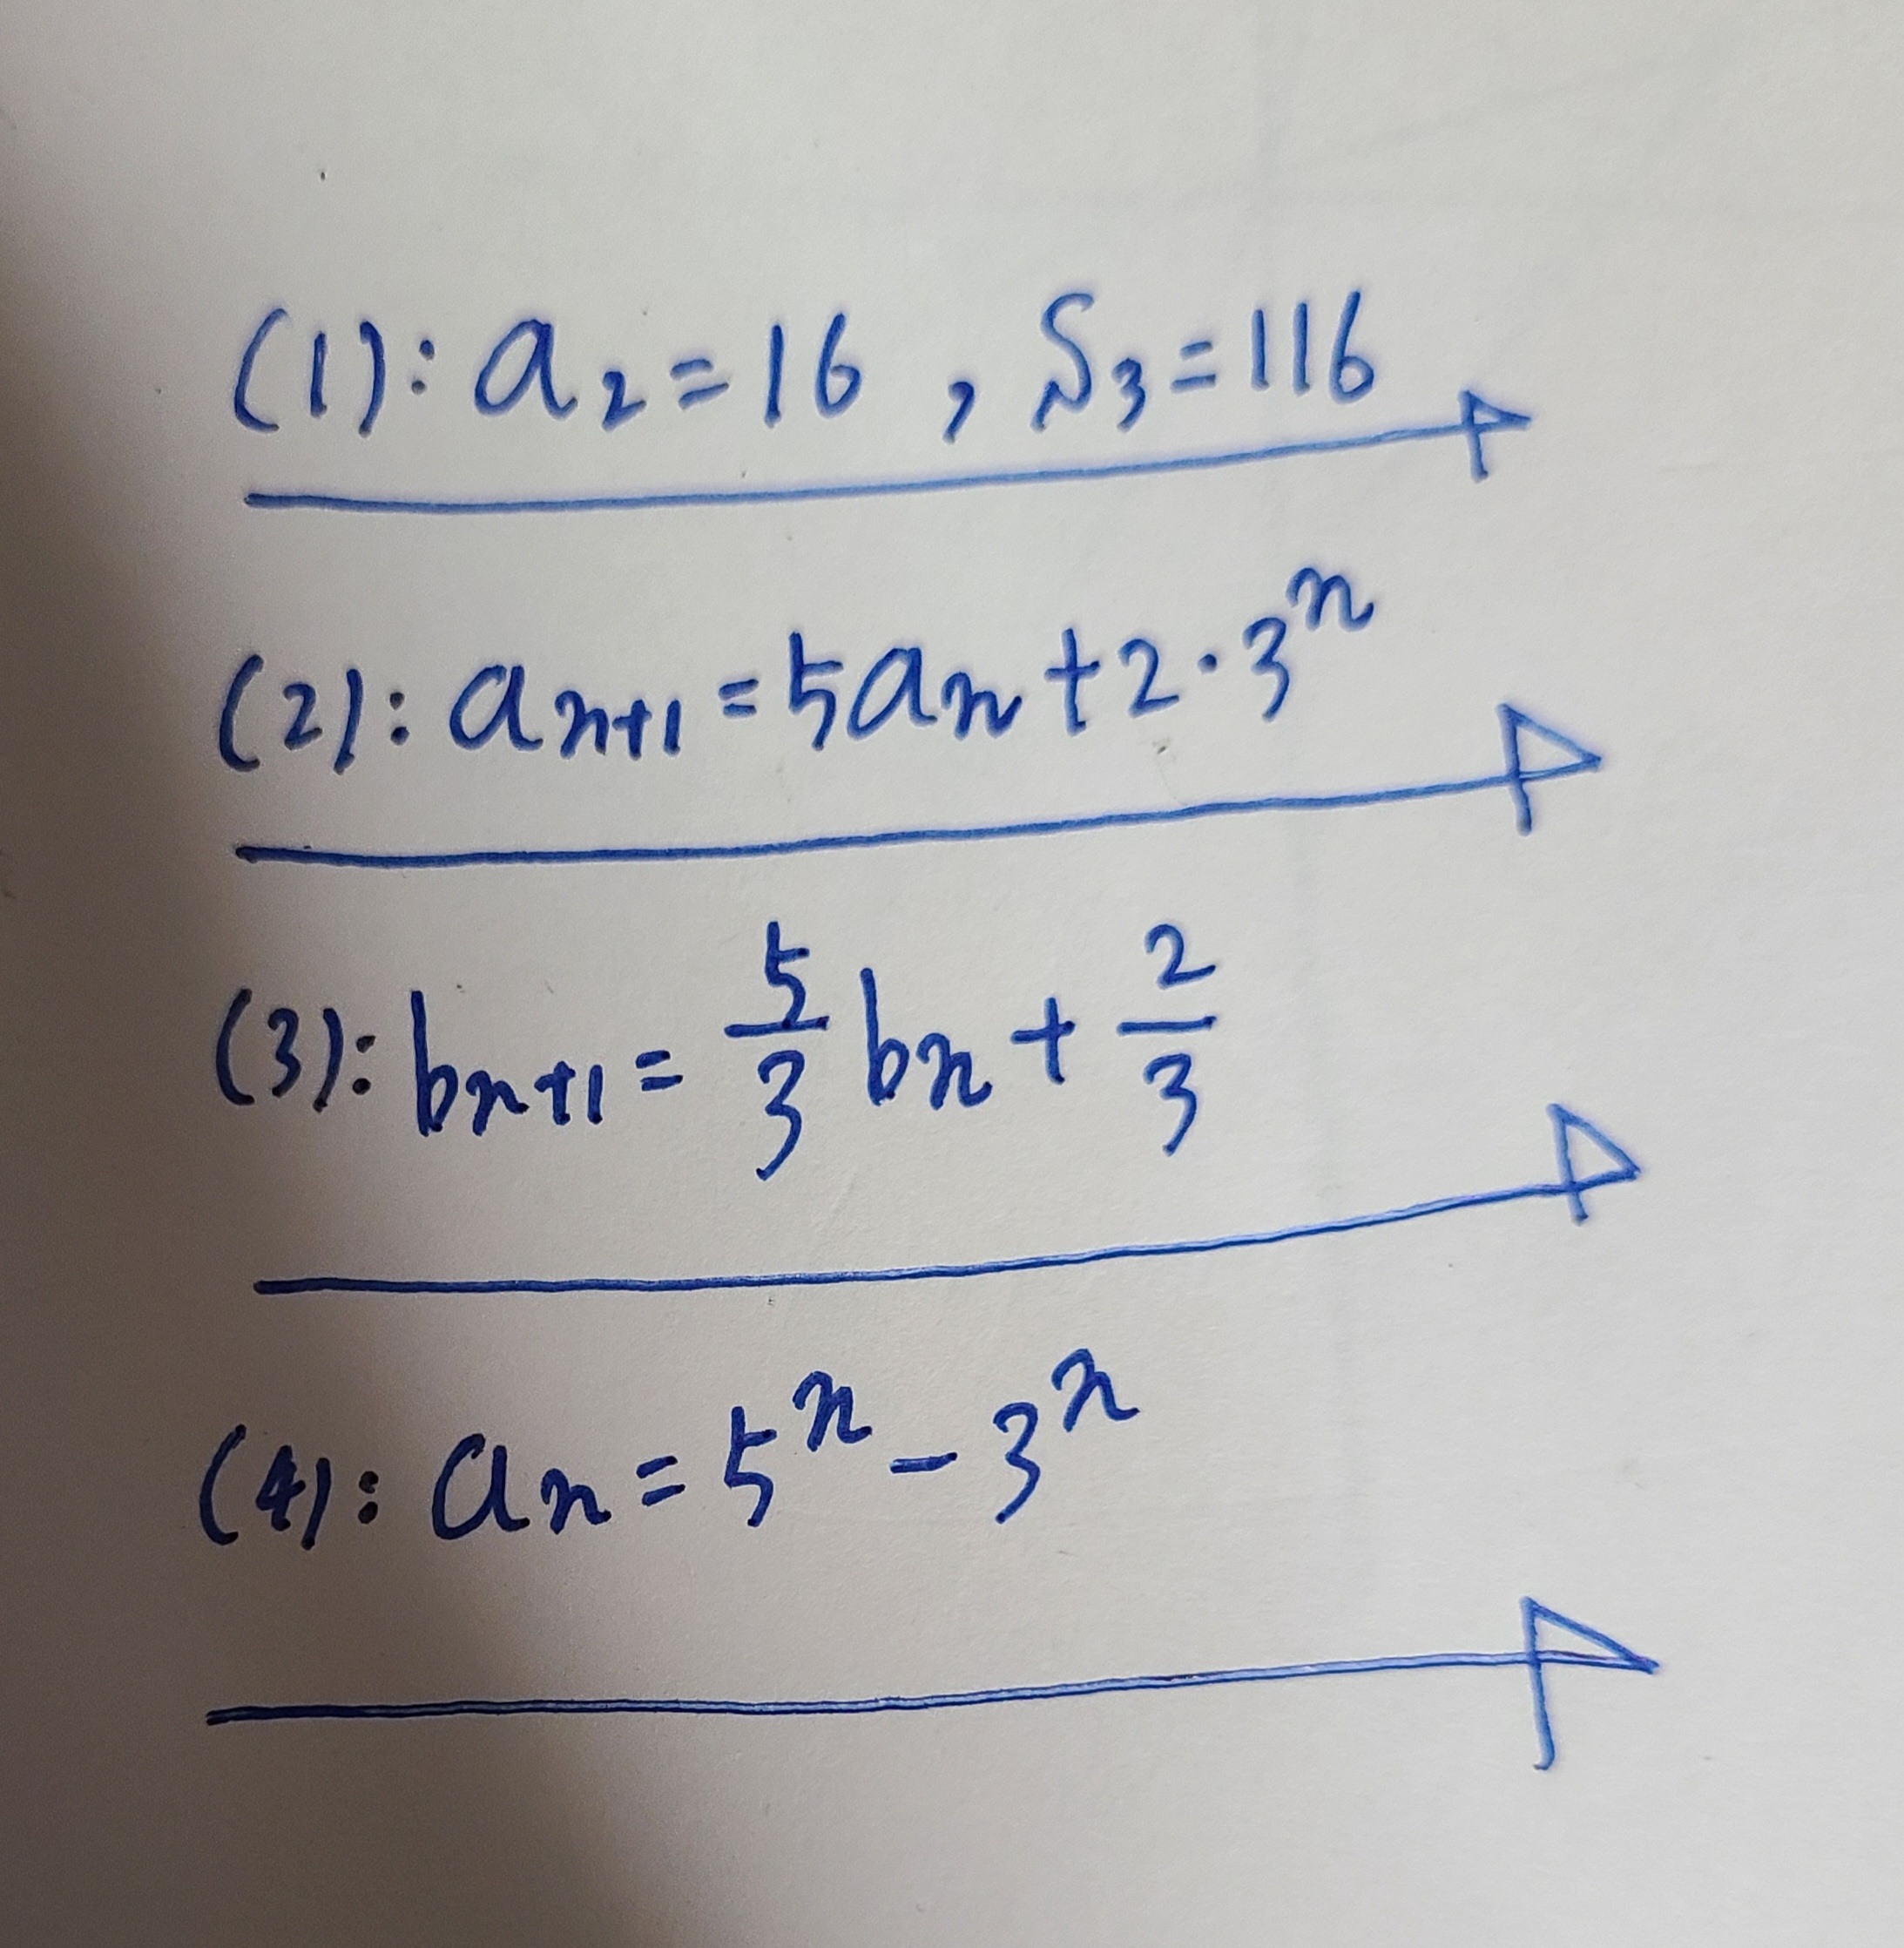 (1): a₂=16 , S₃=116
(2): aₙ₊₁=5aₙ+2·3ⁿ
(3): bₙ₊₁= 5/3 bₙ + 2/3
(4): aₙ=5ⁿ-3ⁿ